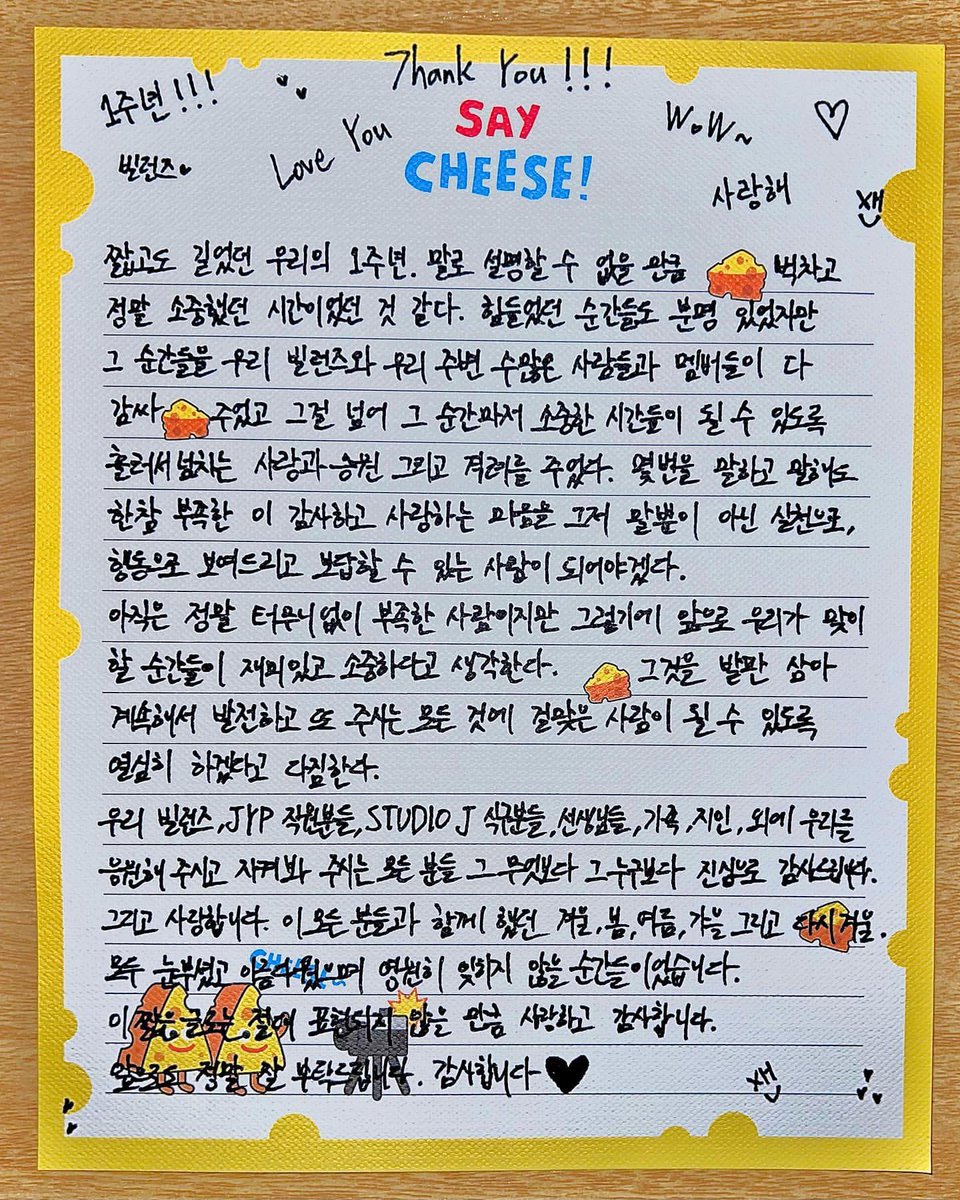 Thank You!!!
1주년!!!
SAY
CHEESE!
Love You
WoW~
빌런즈
사랑해
짧고도 길었던 우리의 1주년. 말로 설명할 수 없을 만큼 벅차고
정말 소중했던 시간이었던 것 같다. 힘들었던 순간들도 분명 있었지만
그 순간들을 우리 빌런즈와 우리 주변 수많은 사람들과 멤버들이 다
감싸 주었고 그걸 넘어 그 순간마저 소중한 시간들이 될 수 있도록
흘러서 넘치는 사랑과 응원 그리고 격려를 주었다. 몇번을 말하고 말해도
한참 부족한 이 감사하고 사랑하는 마음을 그저 말뿐이 아닌 실천으로,
행동으로 보여드리고 보답할 수 있는 사람이 되어야겠다.
아직은 정말 터무니없이 부족한 사람이지만 그렇기에 앞으로 우리가 맞이
할 순간들이 재미있고 소중하다고 생각한다. 그것을 발판 삼아
계속해서 발전하고 또 주시는 모든 것에 걸맞은 사람이 될 수 있도록
열심히 하겠다고 다짐한다.
우리 빌런즈, JYP 직원분들, STUDIO J 식구분들, 선생님들, 가족, 지인, 외에 우리를
응원해 주시고 지켜봐 주시는 모든 분들 그 무엇보다 그 누구보다 진심으로 감사드립니다.
그리고 사랑합니다. 이 모든 분들과 함께 했던 겨울, 봄, 여름, 가을 그리고 다시 겨울.
모두 눈부셨고 아름다웠으며 영원히 잊히지 않을 순간들이었습니다.
이 짧은 글로는 절대 표현되지 않을 만큼 사랑하고 감사합니다.
앞으로도 정말 잘 부탁드립니다. 감사합니다